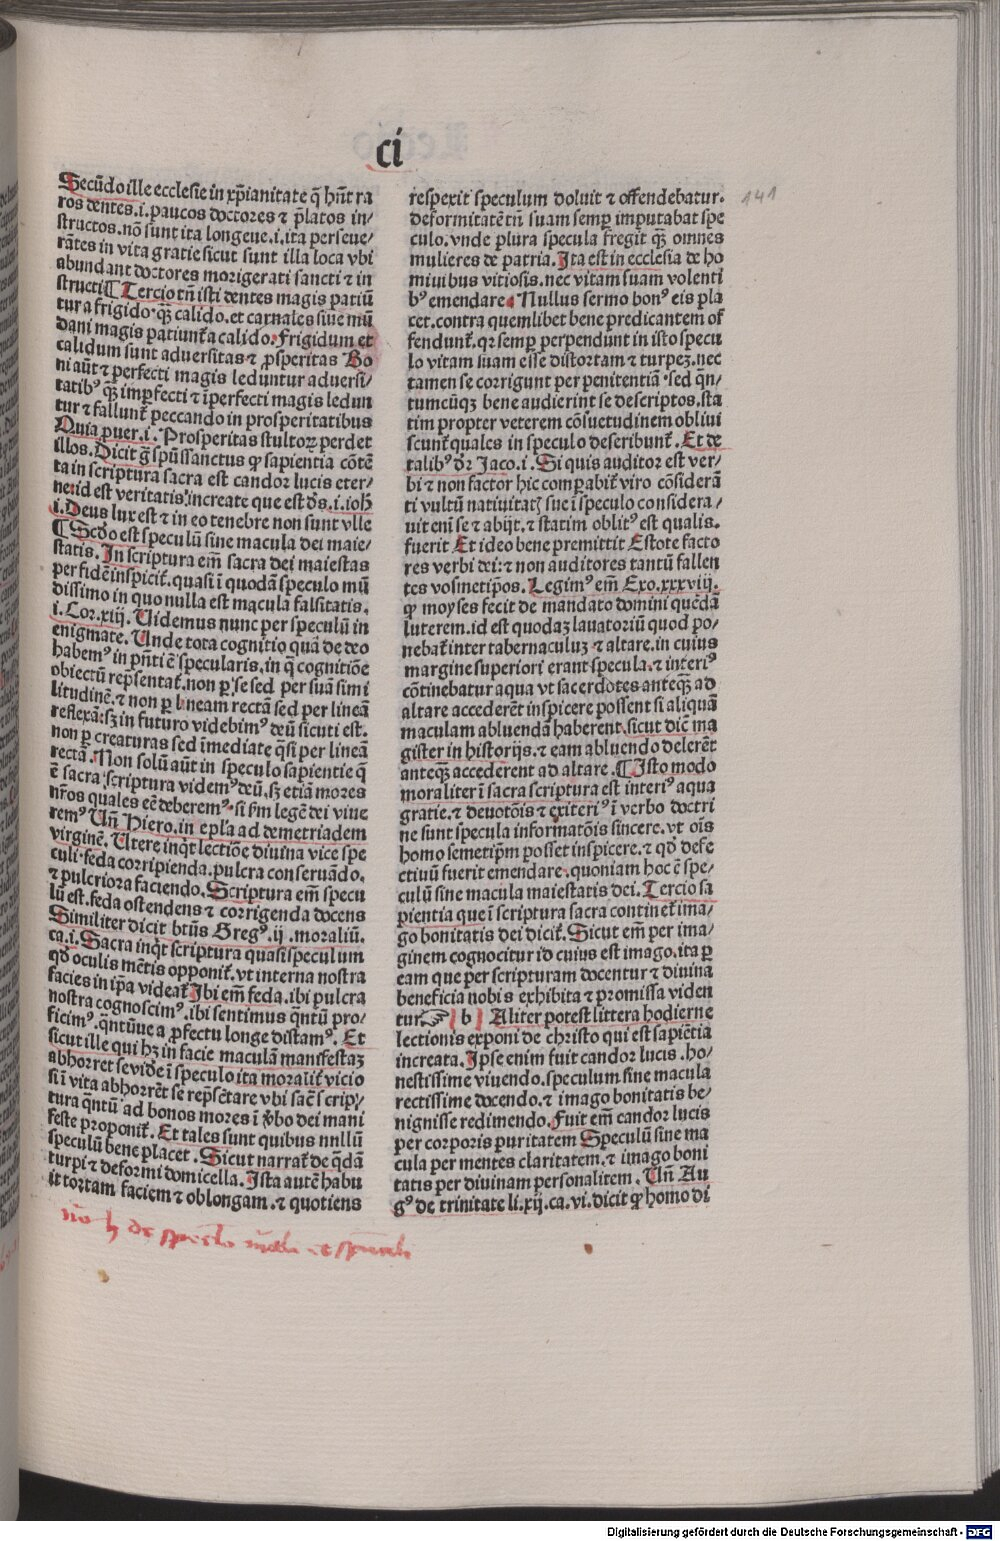 ci
Secūdo ille ecclesie in xp̄ianitate q̄ hn̄t ra
ros dentes .i. paucos doctores ⁊ p̄latos in/
structos. nō sunt ita longeue .i. ita perseue/
rātes in vita gratie sicut sunt illa loca vbi
abundant doctores morigerati sancti ⁊ in
structi ¶ Tercio tn̄ isti dentes magis patiū
tur a frigido ꝙ̄ calido. et carnales siue mū
dani magis patiunt̄ a calido. Frigidum et
calidum sunt aduersitas ⁊ ꝓsperitas Bo
ni aūt ⁊ perfecti magis leduntur aduersi/
tatibꝰ ꝙ̄ imꝑfecti ⁊ īperfecti magis ledun
tur ⁊ fallunt̄ peccando in prosperitatibus
Quia ꝓuer. i. Prosperitas stultoꝝ perdet
illos. Dicit ḡ spūssanctus ꝙ sapientia cōtē
ta in scriptura sacra est candor lucis eter/
ne: id est veritatis increate que est d̄s. i. ioh̄
i. Deus lux est ⁊ in eo tenebre non sunt vlle
¶ Scd̄o est speculū sine macula dei maie/
statis. In scriptura em̄ sacra dei maiestas
per fidē inspicit̄. quasi ī quodā speculo mū
dissimo in quo nulla est macula falsitatis.
i. Cor. xiij. Uidemus nunc per speculū in
enigmate. Unde tota cognitio quā de deo
habemꝰ in pn̄ti ē specularis. in q̄ cognitiōe
obiectū rep̄sentat̄. non ꝑ se sed per suā simi
litudinē. ⁊ non ꝑ lineam rectā sed per lineā
reflexā: sꝫ in futuro videbimꝰ deū sicuti est.
non ꝑ creaturas sed īmediate q̄si per lineā
rectā. Non solū aūt in speculo sapientie q̄
ē sacra scriptura videmꝰ deū, sꝫ etiā mores
nr̄os quales eē deberemꝰ. si ẜm legē dei viue
remꝰ Un̄ Hiero. in ep̄la ad demetriadem
virginē. Utere inq̄t lectiōe diuina vice spe
culi. feda corripienda. pulcra conseruādo.
⁊ pulcriora faciendo. Scriptura em̄ specu
lū est. feda ostendens ⁊ corrigenda docens
Similiter dicit btūs Gregꝰ. ij. moraliū.
ca. i. Sacra inq̄t scriptura quasi speculum
qd̄ oculis mētis opponit̄. vt interna nostra
facies in ip̄a videat̄ Ibi em̄ feda. ibi pulcra
nostra cognoscimꝰ. ibi sentimus q̄ntū pro/
ficimꝰ. q̄ntūue a ꝓfectu longe distamꝰ. Et
sicut ille qui hꝫ in facie maculā manifestaꝫ
abhorret se vide ī speculo ita moralit̄ vicio
si ī vita abhorrēt se rep̄sētare vbi saēs scrip/
tura q̄ntū ad bonos mores ī ꝟbo dei mani
feste proponit̄. Et tales sunt quibus nnllū
speculū bene placet. Sicut narrat̄ de q̄dā
turpi ⁊ deformi domicella. Ista autē habu
it tortam faciem ⁊ oblongam. ⁊ quotiens
respexit speculum doluit ⁊ offendebatur.
deformitatē tn̄ suam semꝑ imputabat spe
culo. vnde plura specula fregit ꝙ̄ omnes
mulieres de patria. Ita est in ecclesia de ho
miuibus vitiosis. nec vitam suam volenti
bꝰ emendare. Nullus sermo bonꝰ eis pla
cet. contra quemlibet bene predicantem of
fendunt̄. qꝛ semꝑ perpendunt in isto specu
lo vitam suam eisse distortam ⁊ turpeꝫ. nec
tamen se corrigunt per penitentiā. sed q̄n/
tumcūqꝫ bene audierint se descriptos. sta
tim propter veterem cōsuetudinem obliui
scunt̄ quales in speculo describunt̄. Et de
talibꝰ dr̄ Jaco. i. Si quis auditor est ver/
bi ⁊ non factor hic comꝑabit̄ viro cōsiderā
ti vultū natiuitatꝭ sue ī speculo considera/
uit enī se ⁊ abijt. ⁊ statim oblitꝰ est qualis.
fuerit Et ideo bene premittit Estote facto
res verbi dei: ⁊ non auditores tantū fallen
tes vosmetip̄os. Legimꝰ em̄ Exo. xxxviij.
ꝙ moyses fecit de mandato domini quēdā
luterem. id est quodaꝫ lauatoriū quod po/
nebat̄ inter tabernaculuꝫ ⁊ altare. in cuius
margine superiori erant specula. ⁊ interiꝰ
cōtinebatur aqua vt sacerdotes anteqꝫ̄ ad
altare accederēt inspicere possent si aliquā
maculam abluendā haberent. sicut dic̄ ma
gister in historijs. ⁊ eam abluendo delerēt
anteqꝫ̄ accederent ad altare. ¶ Isto modo
moraliter ī sacra scriptura est interiꝰ aqua
gratie. ⁊ deuotōis ⁊ exiteriꝰ ī verbo doctri
ne sunt specula informatōis sincere. vt oīs
homo semetip̄m posset inspicere. ⁊ qd̄ defe
ctiuū fuerit emendare. quoniam hoc ē spe/
culū sine macula maiestatis dei. Tercio sa
pientia que ī scriptura sacra continet̄ ima/
go bonitatis dei dicit̄. Sicut em̄ per ima/
ginem cognocitur id cuius est imago. ita ꝑ
eam que per scripturam docentur ⁊ diuina
beneficia nobis exhibita ⁊ promissa viden
tur. ☞ b Aliter potest littera hodierne
lectionis exponi de christo qui est sapiētia
increata. Ipse enim fuit candor lucis. ho/
nestissime viuendo. speculum sine macula
rectissime docendo. ⁊ imago bonitatis be/
nignisse redimendo. Fuit em̄ candor lucis
per corporis puritatem Speculū sine ma
cula per mentes claritatem. ⁊ imago boni
tatis per diuinam personalitem. Un̄ Au
gꝰ de trinitate li. xij. ca. vi. dicit ꝙ homo di
141
Digitalisierung gefördert durch die Deutsche Forschungsgemeinschaft - DFG